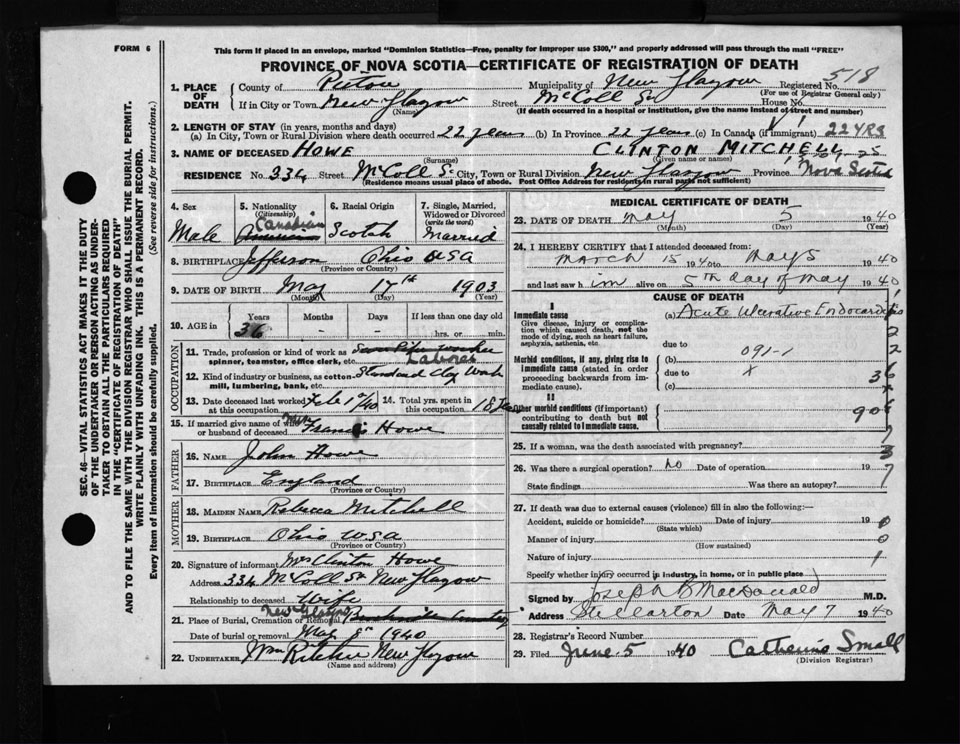 FORM 6
This form if placed in an envelope, marked "Dominion Statistics—Free, penalty for improper use $300," and properly addressed will pass through the mail "FREE"
PROVINCE OF NOVA SCOTIA—CERTIFICATE OF REGISTRATION OF DEATH
518
1. PLACE OF DEATH
County of Pictou Municipality of New Glasgow Registered No.
(For use of Registrar General only)
If in City or Town New Glasgow Street McColl St House No.
(Name) (If death occurred in a hospital or institution, give the name instead of street and number)
2. LENGTH OF STAY (in years, months and days)
(a) In City, Town or Rural Division where death occurred 22 years (b) In Province 22 years (c) In Canada (if immigrant) 22 YRS
3. NAME OF DECEASED HOWE CLINTON MITCHELL
(Surname) (Given name or names)
RESIDENCE No. 334 Street McColl St City, Town or Rural Division New Glasgow Province Nova Scotia
(Residence means usual place of abode. Post Office Address for residents in rural parts not sufficient)
SEC. 46—VITAL STATISTICS ACT MAKES IT THE DUTY
OF THE UNDERTAKER OR PERSON ACTING AS UNDER-
TAKER TO OBTAIN ALL THE PARTICULARS REQUIRED
IN THE "CERTIFICATE OF REGISTRATION OF DEATH"
AND TO FILE THE SAME WITH THE DIVISION REGISTRAR WHO SHALL ISSUE THE BURIAL PERMIT.
WRITE PLAINLY WITH UNFADING INK. THIS IS A PERMANENT RECORD.
Every item of information should be carefully supplied. (See reverse side for instructions.)
4. Sex Male
5. Nationality (Citizenship) Canadian American
6. Racial Origin Scotch
7. Single, Married, Widowed or Divorced (write the word) Married
8. BIRTHPLACE Jefferson Ohio USA
(Province or Country)
9. DATE OF BIRTH May 17th 1903
(Month) (Day) (Year)
10. AGE in Years Months Days If less than one day
36 - - hrs. or min.
OCCUPATION
11. Trade, profession or kind of work as spinner, teamster, office clerk, etc. Sewer Pipe worker Laborer
12. Kind of industry or business, as cotton-mill, lumbering, bank, etc. Standard Clay Work
13. Date deceased last worked at this occupation Feb 1940
14. Total yrs. spent in this occupation 18
15. If married give name of wife or husband of deceased Mrs Francis Howe
FATHER
16. NAME John Howe
17. BIRTHPLACE England
(Province or Country)
MOTHER
18. MAIDEN NAME Rebecca Mitchell
19. BIRTHPLACE Ohio USA
(Province or Country)
20. Signature of informant Mrs Clinton Howe
Address 334 McColl St New Glasgow
Relationship to deceased Wife
21. Place of Burial, Cremation or Removal New Glasgow Cemetery
Date of burial or removal May 8th 1940
22. UNDERTAKER Wm Ritchie New Glasgow
(Name and address)
MEDICAL CERTIFICATE OF DEATH
23. DATE OF DEATH May 5 1940
(Month) (Day) (Year)
24. I HEREBY CERTIFY that I attended deceased from:
March 15 1940 to May 5 1940
and last saw him alive on 5th day of May 1940
CAUSE OF DEATH
I
Immediate cause
Give disease, injury or complication which caused death, not the mode of dying, such as heart failure, asphyxia, asthenia, etc.
(a) Acute Ulcerative Endocarditis
due to
Morbid conditions, if any, giving rise to immediate cause (stated in order proceeding backwards from immediate cause).
(b) 091-1
due to x
(c)
II
Other morbid conditions (if important) contributing to death but not causally related to immediate cause.
25. If a woman, was the death associated with pregnancy?
26. Was there a surgical operation? No Date of operation 19
State findings Was there an autopsy?
27. If death was due to external causes (violence) fill in also the following:—
Accident, suicide or homicide? Date of injury 19
(State which)
Manner of injury
(How sustained)
Nature of injury
Specify whether injury occurred in industry, in home, or in public place
Signed by Joseph B MacDonald M.D.
Address Stellarton Date May 7 1940
28. Registrar's Record Number
29. Filed June 5 1940 Catherine Small
(Division Registrar)